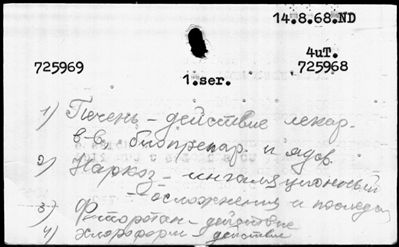 14.8.68.ND
4uT.
725969 725968
1.ser.
1) Печень - действие лекар.
в-в, биопрепар. и ядов
2) Наркоз - ингаляционный
- осложнения и последст
3) Фторотан - действие
4) Хлороформ - действие